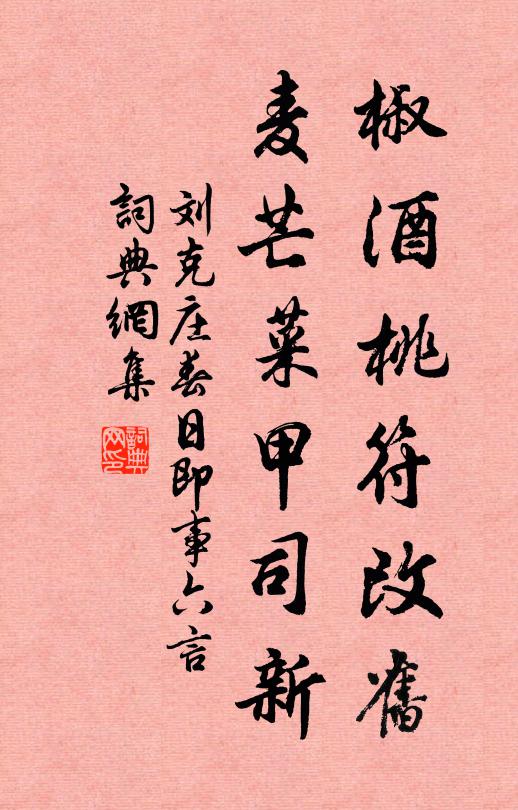 椒酒桃符改舊
麦芒菜甲司新
刘克庄春日即事六言
詞典網集
詞典网印